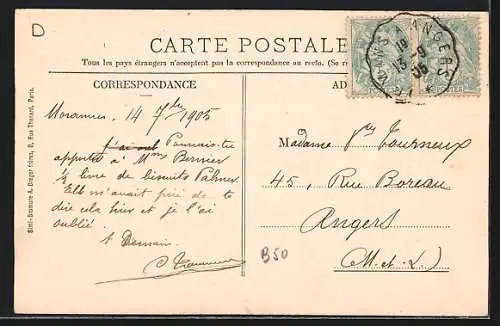 D
CARTE POSTALE
Tous les pays étrangers n'acceptent pas la correspondance au recto. (Se r
CORRESPONDANCE
AD
MANS A ANGERS
13 -9
05
Morannes, 14 7bre 1905
j'ai oub Pourrais-tu
apporter à Mme Bernier
½ livre de biscuits Palmer
Elle m'avait prié de te
dire cela hier et je l'ai
oublié.
à Demain.
Madame Vve Tourneux
45, Rue Boreau
Angers
(M-et-L)
B50
Simili-Gravure A. Breger frères, 9, Rue Thénard, Paris.